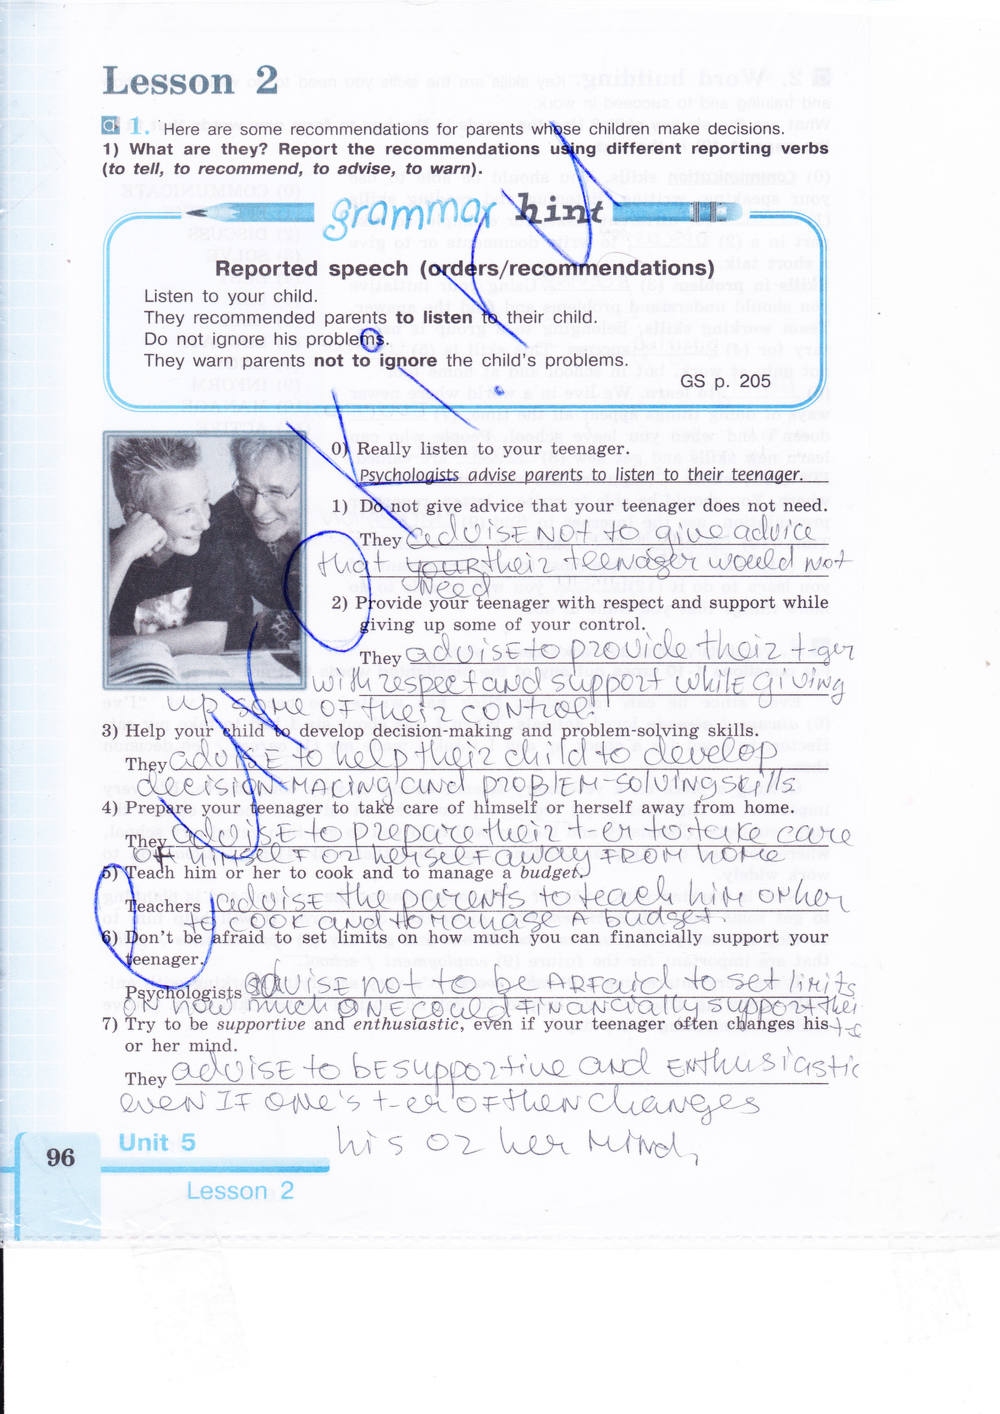 Lesson 2
1. Here are some recommendations for parents whose children make decisions.
1) What are they? Report the recommendations using different reporting verbs
(to tell, to recommend, to advise, to warn).
grammar hint
Reported speech (orders/recommendations)
Listen to your child.
They recommended parents to listen to their child.
Do not ignore his problems.
They warn parents not to ignore the child's problems.
GS p. 205
0) Really listen to your teenager.
Psychologists advise parents to listen to their teenager.
1) Do not give advice that your teenager does not need.
They advise not to give advice
that your their teenager would not
need
2) Provide your teenager with respect and support while
giving up some of your control.
They advise to provide their t-ger
with respect and support while giving
up some of their control.
3) Help your child to develop decision-making and problem-solving skills.
They advise to help their child to develop
decision-macing and problem-solving skills
4) Prepare your teenager to take care of himself or herself away from home.
They advise to prepare their t-er to take care
of himself or herself away from home
5) Teach him or her to cook and to manage a budget.
Teachers advise the parents to teach him or her
to cook and to manage a budget.
6) Don't be afraid to set limits on how much you can financially support your
teenager.
Psychologists advise not to be afraid to set limits
on how much one could financially support their
t-e
7) Try to be supportive and enthusiastic, even if your teenager often changes his
or her mind.
They advise to be supportive and enthusiastic
even if one's t-er often changes
his or her mind,
96
Unit 5
Lesson 2